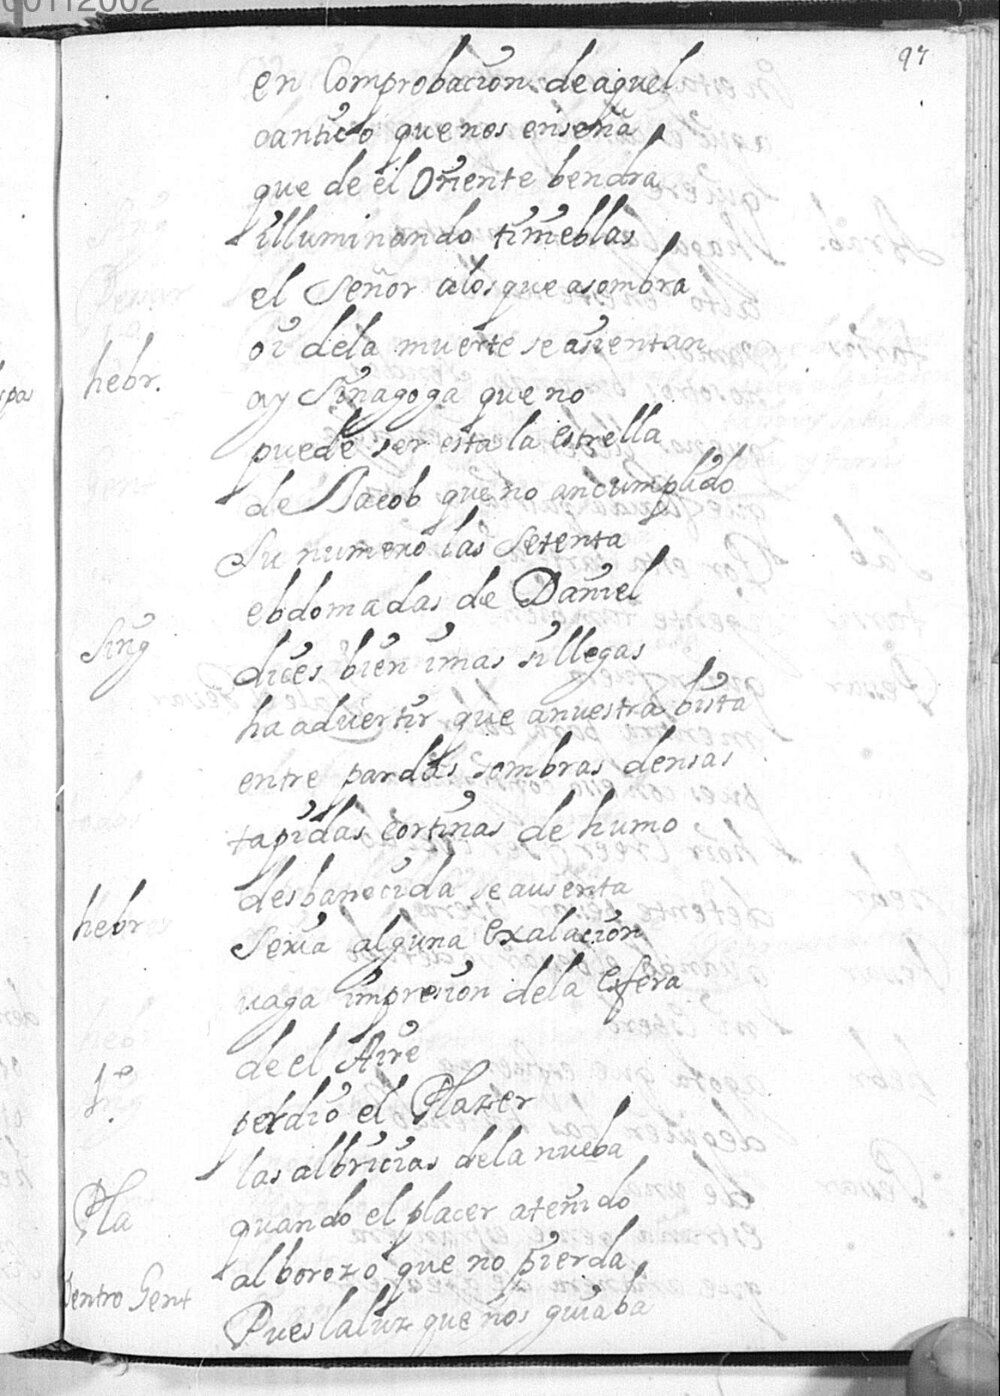 97
en Comprobacion de aquel
cantico que nos enseña
que de el Oriente bendra
illuminando tinieblas
el Señor alos que asombra
oi dela muerte se asientan
hebr. ay Sinagoga que no
puede ser esta la estrella
de Jacob que no an cumplido
Su numero las Setenta
ebdomadas de Daniel
Sing dices bien i mas si llegas
ha advertir que a nuestra bista
entre pardas sombras densas
tapidas cortinas de humo
desbanecida se ausenta
hebre Seria alguna exalacion
uaga impresion dela esfera
de el Aire
1º perdio el Plazer
las albricias dela nueba
Pla quando el placer a tenido
alborozo que no pierda
Dentro Gent Pues la luz que nos guiaba